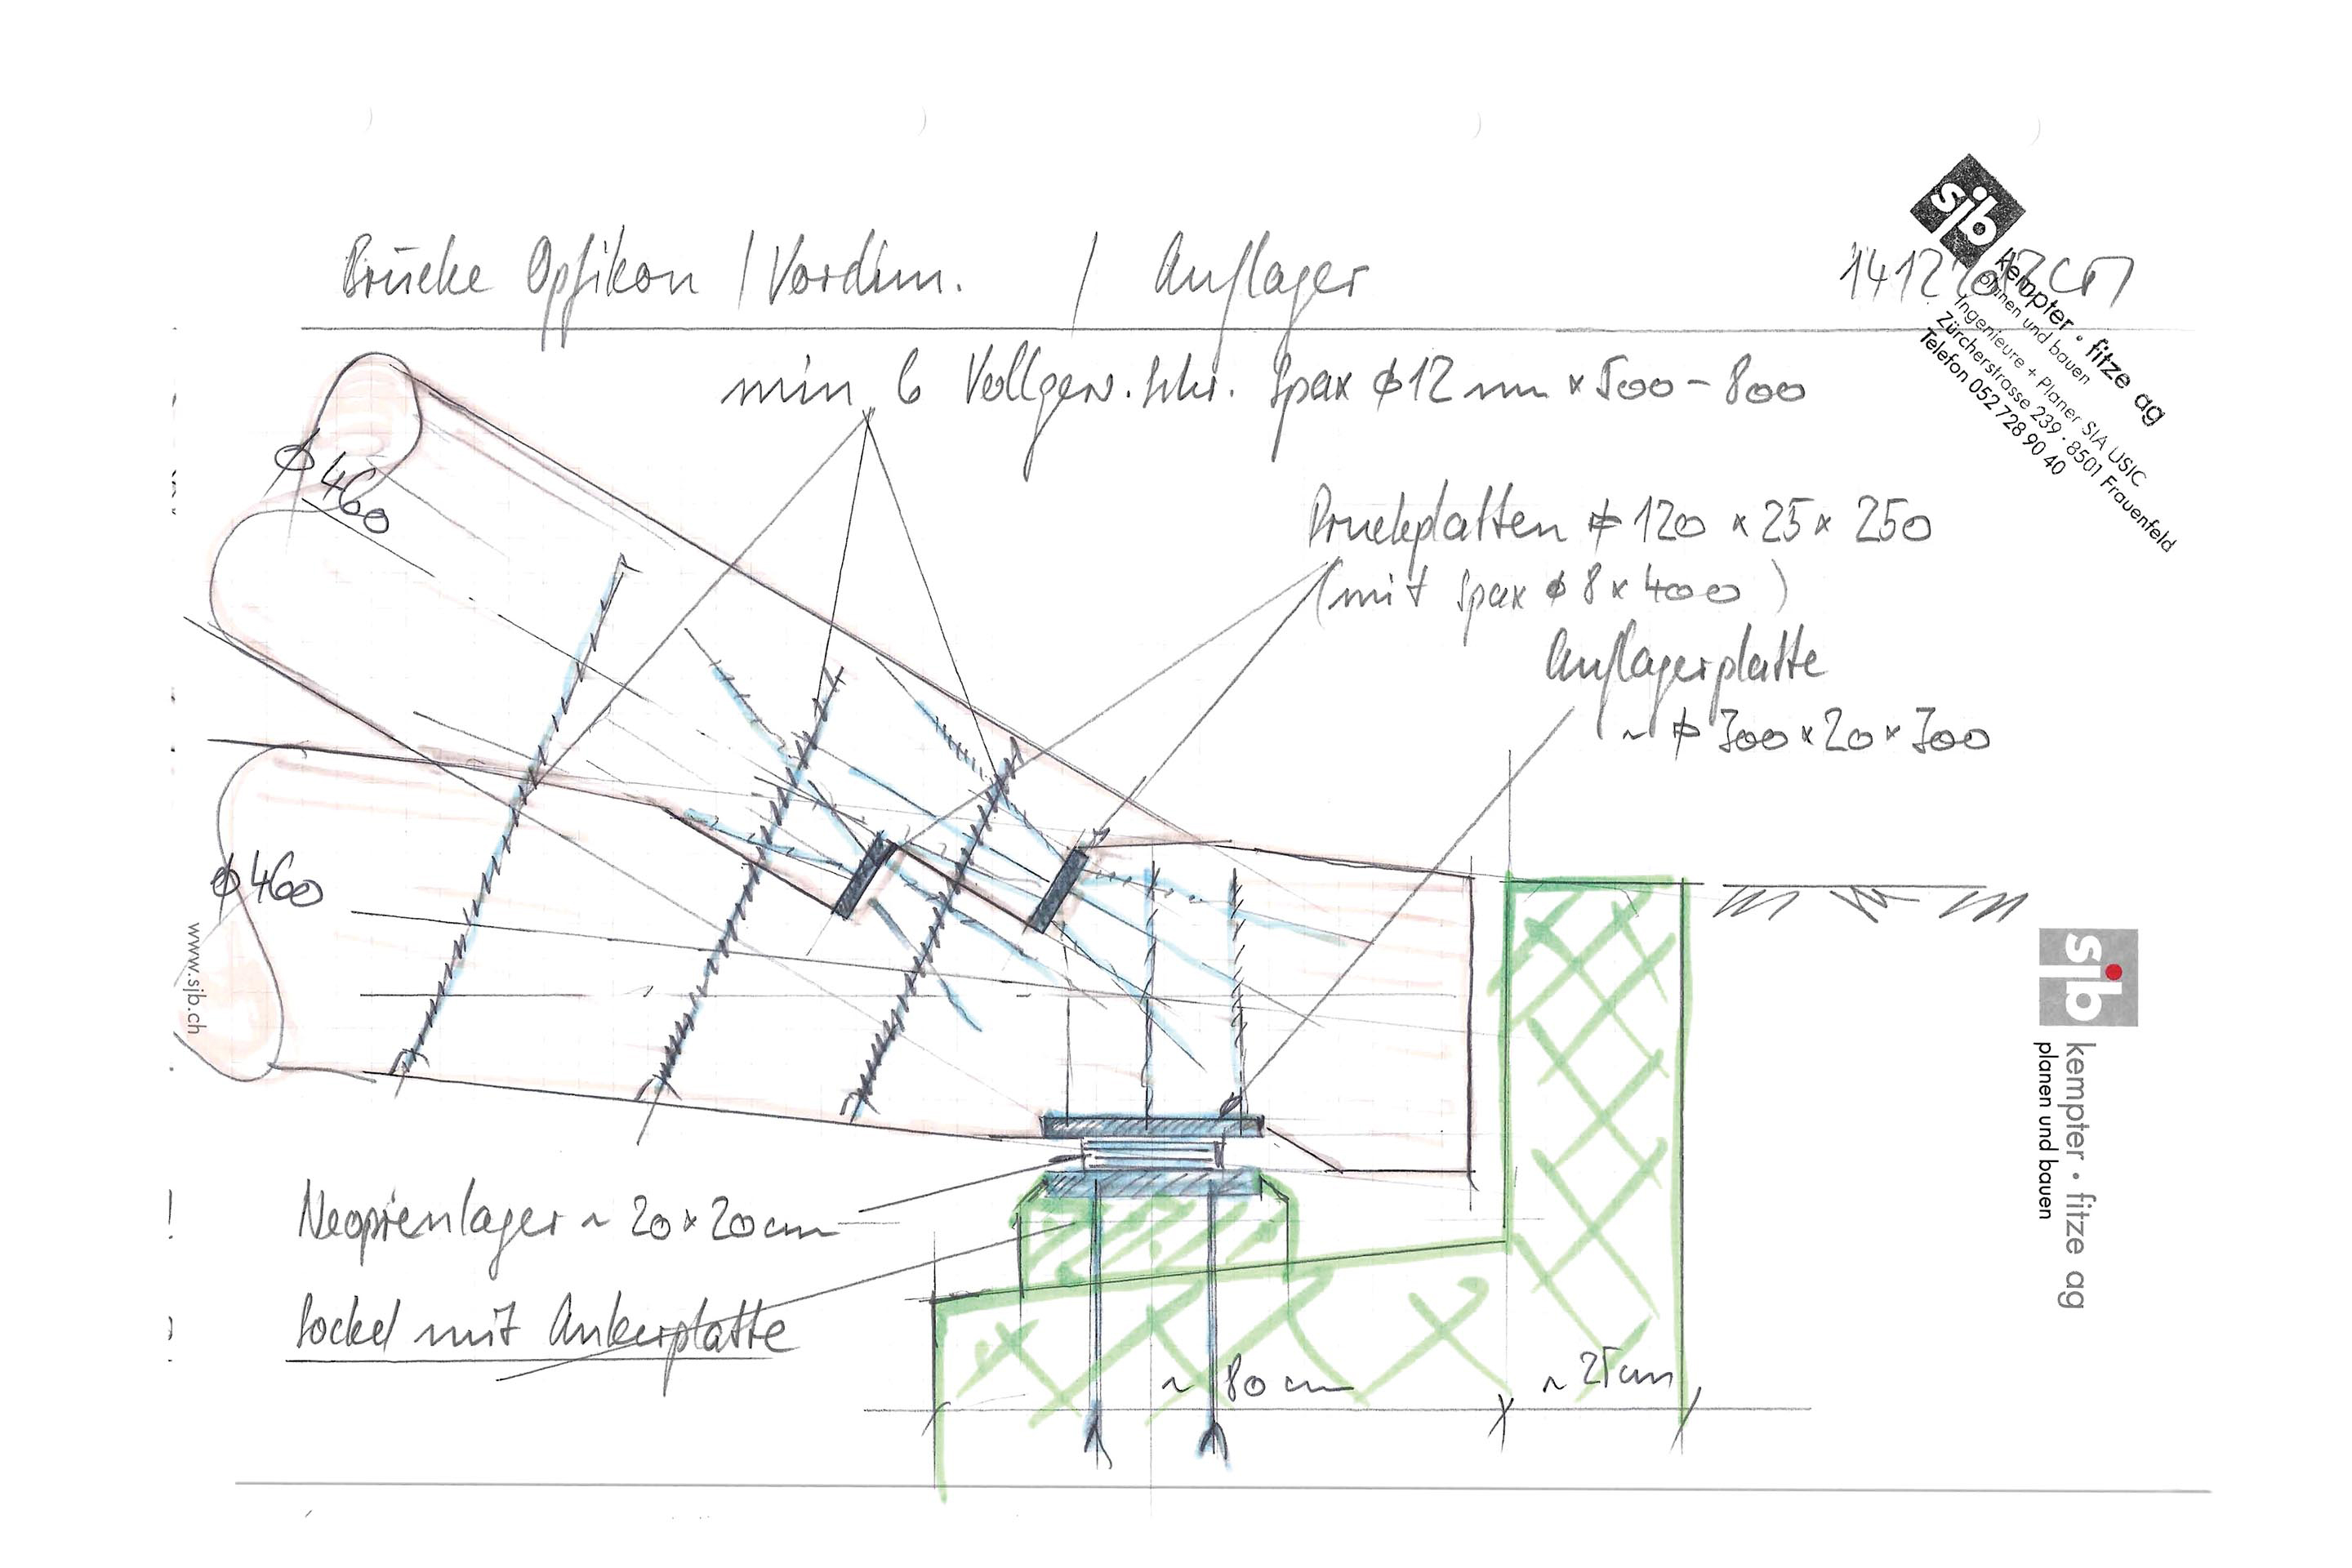 Brücke Opfikon / Vordim. / Auflager
min 6 Vollgew. Schr. Spax ϕ12 mm × 500 – 800
Druckplatten ⌀ 120 × 25 × 250
(mit Spax ϕ 8 × 400)
Auflagerplatte
~ ⌀ 300 × 20 × 300
ϕ 460
ϕ 460
Neoprenlager ~ 20 × 20 cm
Sockel mit Ankerplatte
~ 80 cm
~ 25 cm
sjb
kempter · fitze ag
planen und bauen
Ingenieure + Planer SIA USIC
Zürcherstrasse 239 · 8501 Frauenfeld
Telefon 052 728 90 40
www.sjb.ch
sjb
kempter · fitze ag
planen und bauen